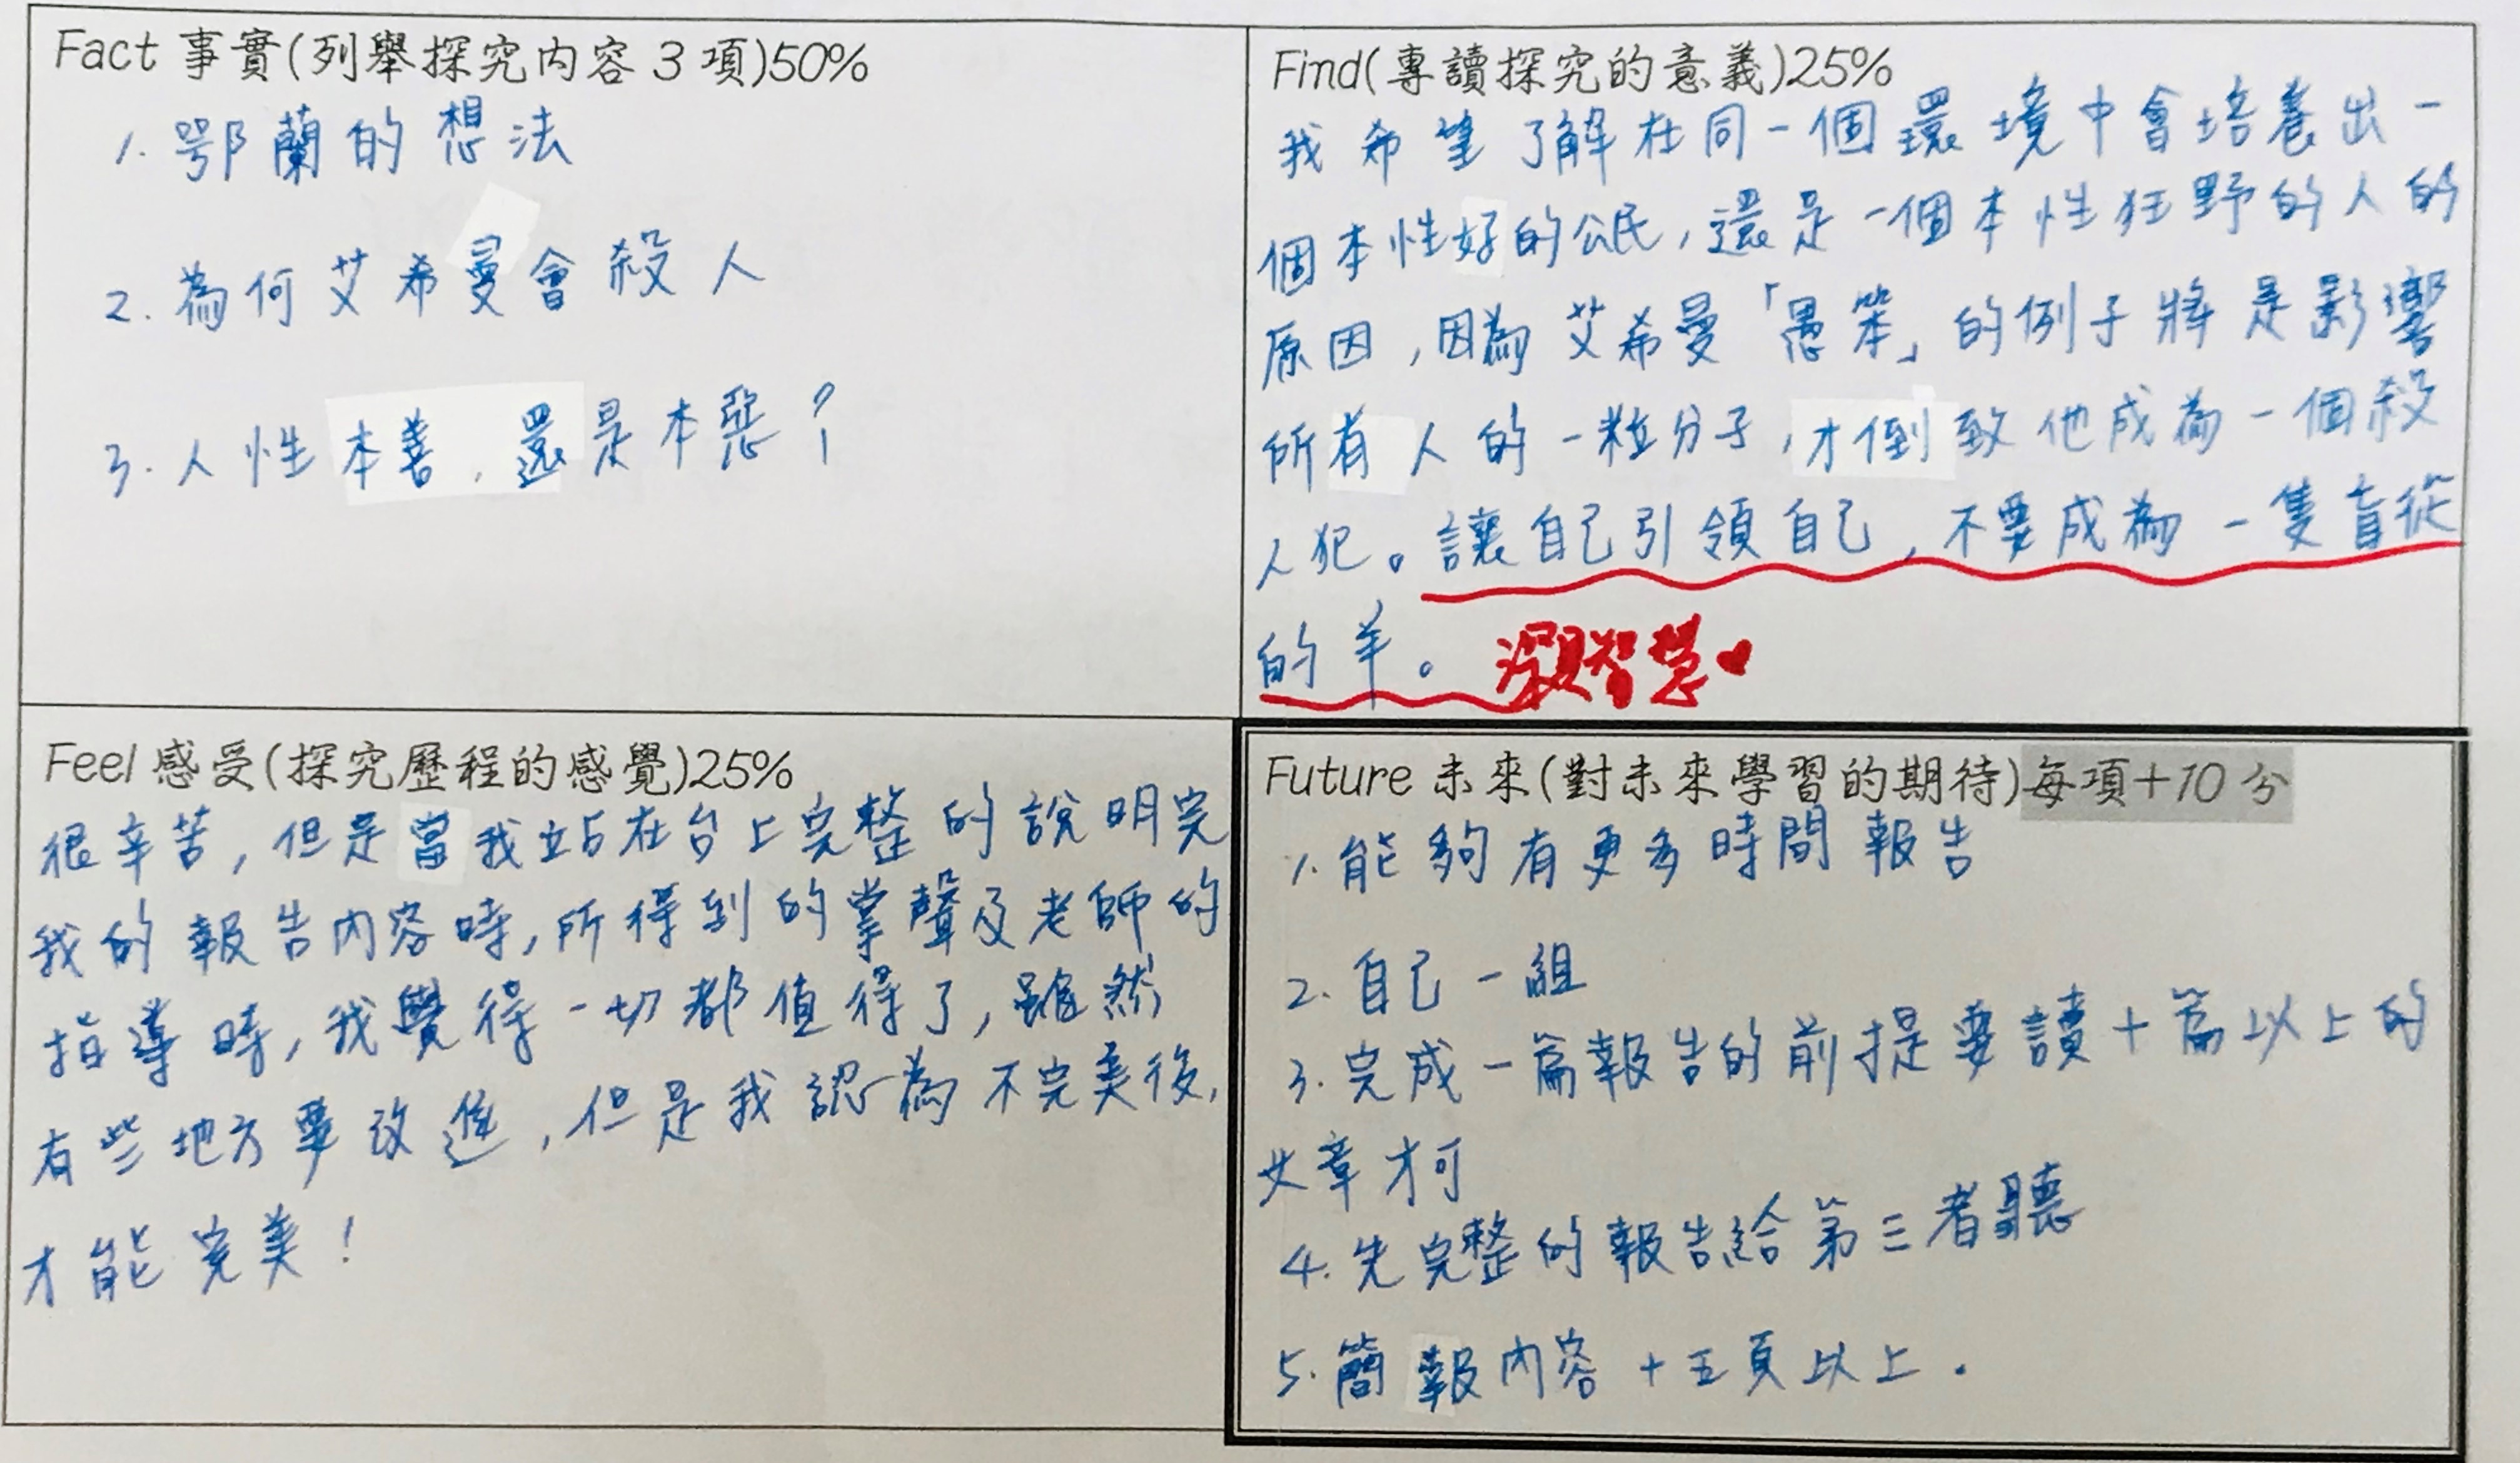 Fact 事實(列舉探究內容 3 項)50%
1. 鄂蘭的想法
2. 為何艾希曼會殺人
3. 人性本善，還是本惡？
Find(專讀探究的意義)25%
我希望了解在同一個環境中會培養出一
個本性好的公民，還是一個本性狂野的人的
原因，因為艾希曼「愚笨」的例子將是影響
所有人的一粒分子，才倒致他成為一個殺
人犯。讓自己引領自己，不要成為一隻盲從
的羊。 深具智慧♥
Feel 感受(探究歷程的感覺)25%
很辛苦，但是當我站在台上完整的說明完
我的報告內容時，所得到的掌聲及老師的
指導時，我覺得一切都值得了，雖然
有些地方要改進，但是我認為不完美後，
才能完美！
Future 未來(對未來學習的期待)每項+10 分
1. 能夠有更多時間報告
2. 自己一組
3. 完成一篇報告的前提要讀十篇以上的
文章才可
4. 先完整的報告給第三者聽
5. 簡報內容十五頁以上．